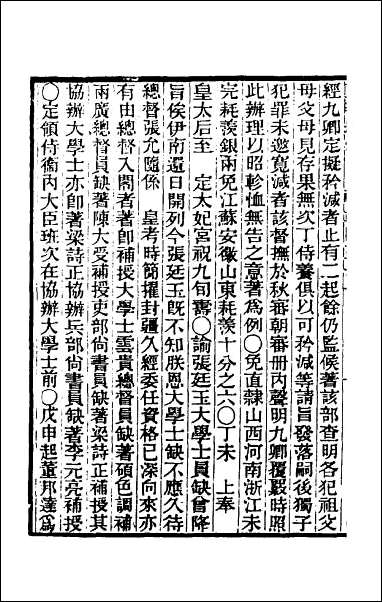 經九卿定擬矜減者止有二起餘仍監候著該部查明各犯祖父
母父母見存果無次丁侍養俱以可矜減等請旨發落嗣後獨子
犯罪未邀寬減者該督撫於秋審朝審冊內聲明九卿覆覈時照
此辦理以昭軫恤無告之意著爲例〇免直隸山西河南浙江未
完耗羨銀兩免江蘇安徽山東耗羨十分之六〇丁未　上奉
皇太后至　定太妃宮祝九旬壽〇諭張廷玉大學士員缺曾降
旨俟伊南還日開列今張廷玉既不知朕恩大學士缺不應久待
總督張允隨係　皇考時簡擢封疆久經委任資格已深向來亦
有由總督入閣者著即補授大學士雲貴總督員缺著碩色調補
兩廣總督員缺著陳大受補授吏部尚書員缺著梁詩正補授其
協辦大學士亦即著梁詩正協辦兵部尚書員缺著李元亮補授
〇定領侍衞內大臣班次在協辦大學士前〇戊申起董邦達爲